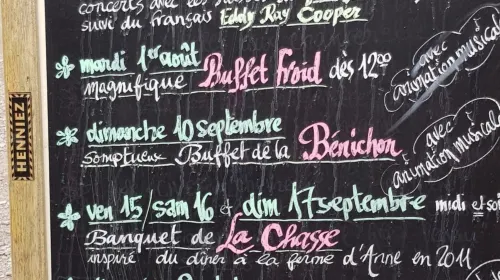 concerts avec les
suivi du français Eddy Ray Cooper
mardi 1er août
magnifique Buffet froid dès 12⁰⁰
avec
animation musical
dimanche 10 septembre
somptueux Buffet de la Bénichon
avec
animation musicale
ven 15/sam 16 & dim 17 septembre midi et soi
Banquet de La Chasse
inspiré du dîner à la ferme d'Anne en 2011
HENNIEZ